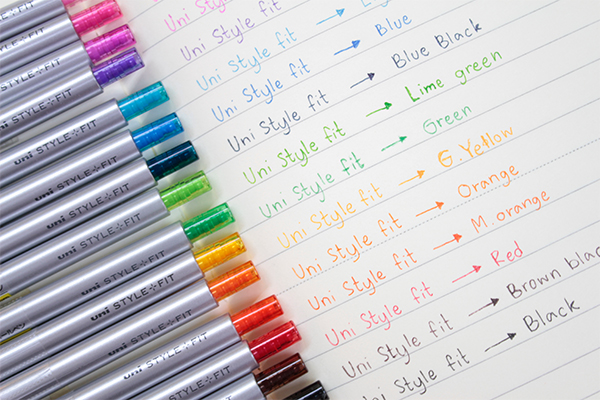 Uni Style fit
Uni Style fit
Uni Style fit →
Uni Style fit → Blue
Uni Style fit → Blue Black
Uni Style fit → Lime green
Uni Style fit → Green
Uni Style fit → G.Yellow
Uni Style fit → Orange
Uni Style fit → M.orange
Uni Style fit → Red
Uni Style fit → Brown blac
Uni Style fit → Black
uni STYLE FIT
uni STYLE FIT
uni STYLE FIT
uni STYLE FIT
uni STYLE FIT
uni STYLE FIT
uni STYLE FIT
uni STYLE FIT
uni STYLE FIT
uni STYLE FIT
uni STYLE FIT
uni STYLE FIT